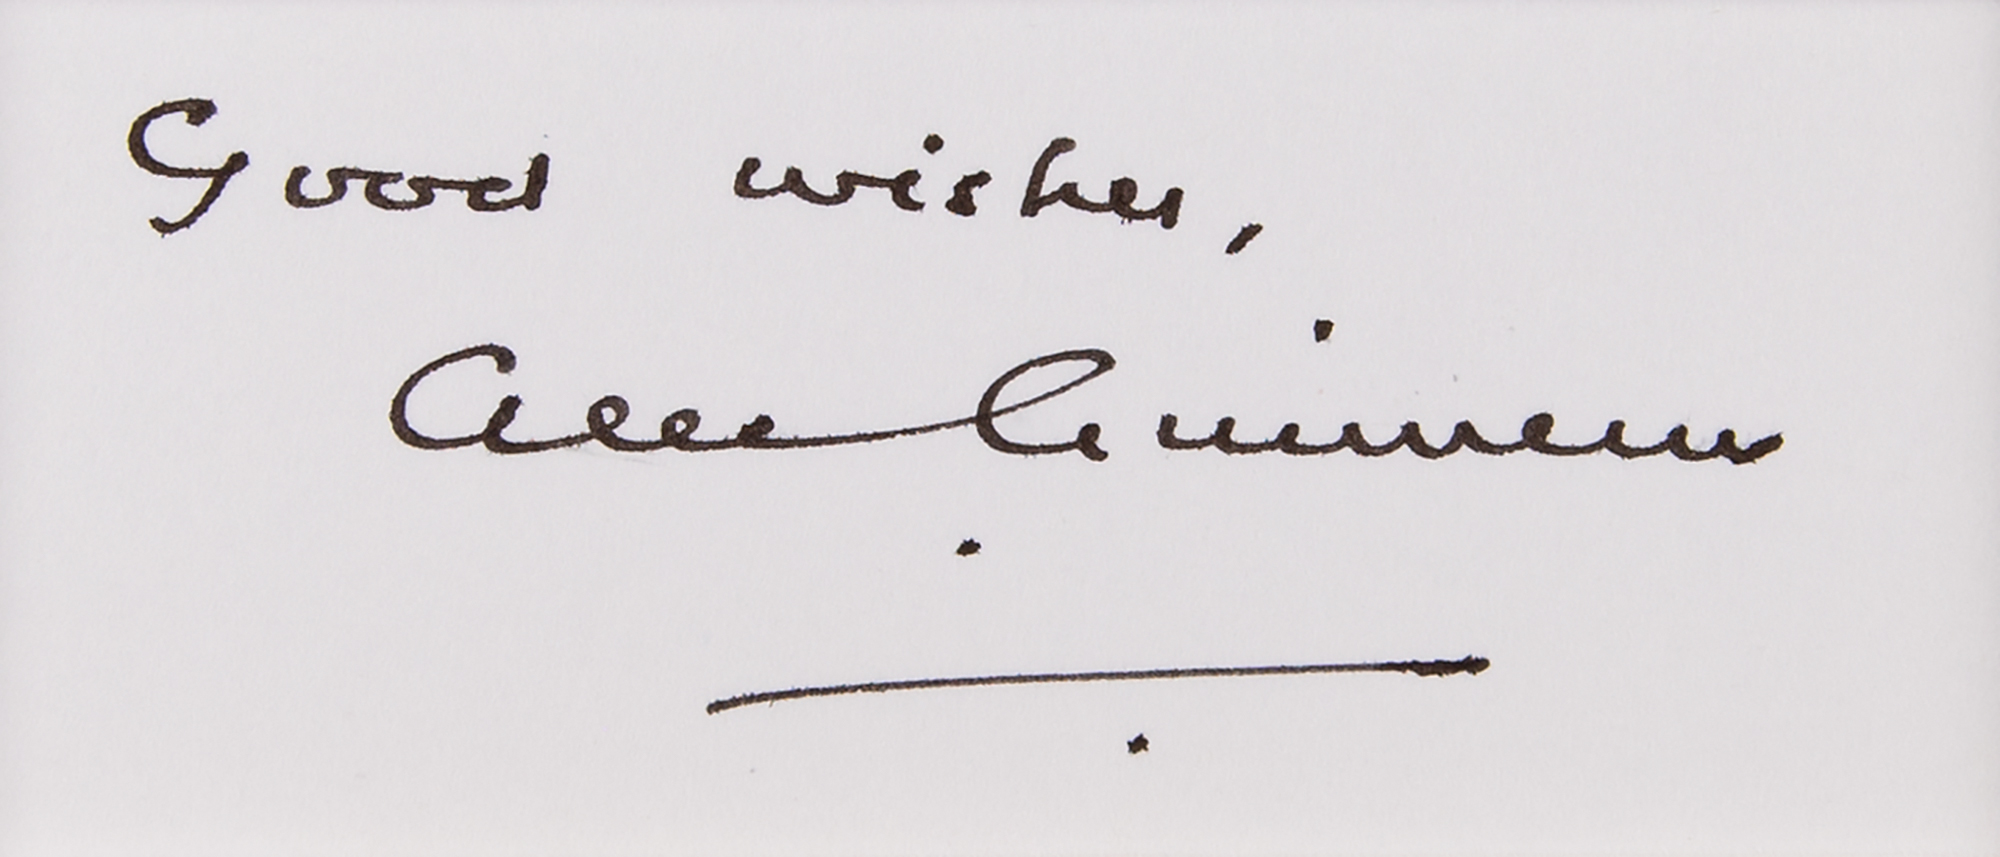 Good wishes,
Alec Guinness